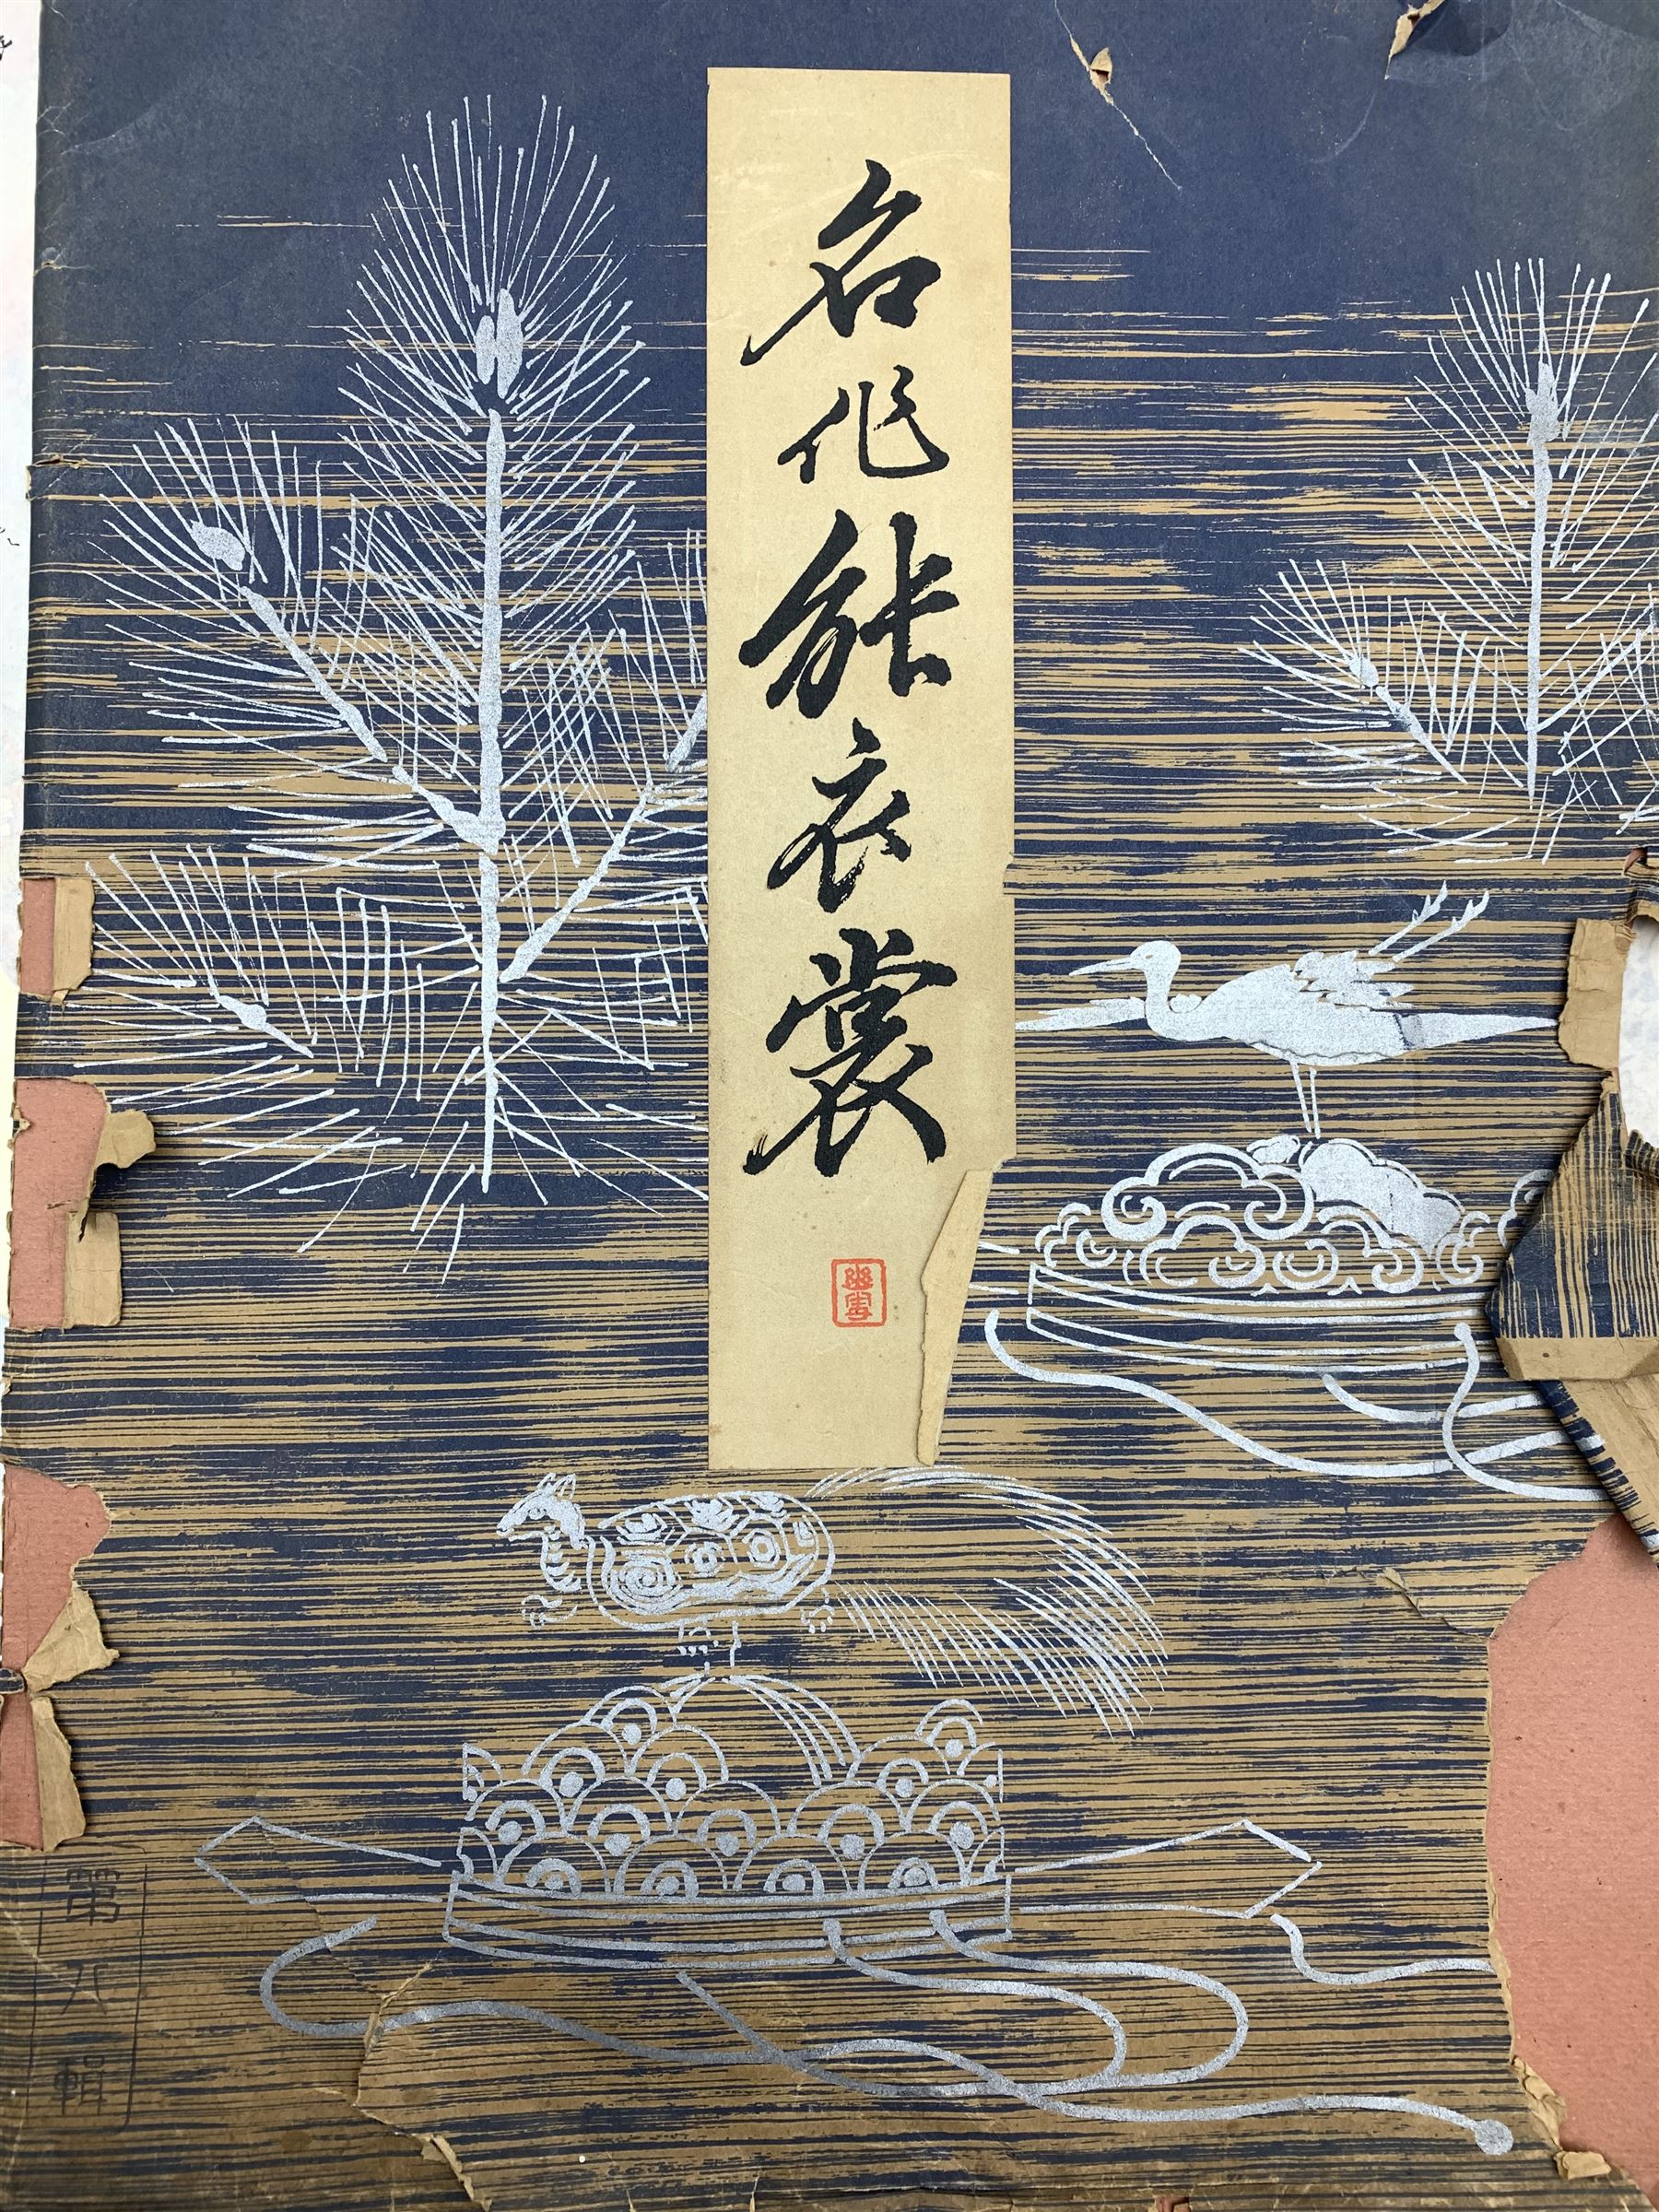 名作能衣裳
第八輯